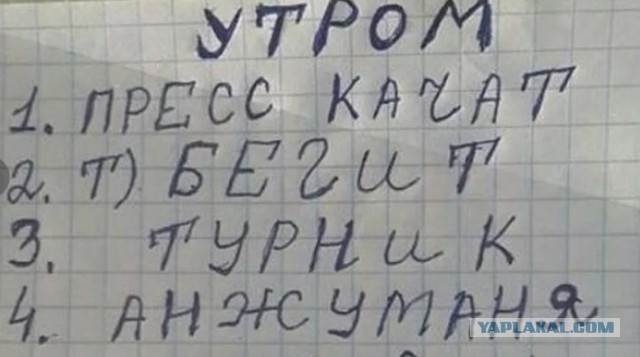 УТРОМ
1. ПРЕСС КАЧАТ
2. Т) БЕГИТ
3. ТУРНИК
4. АНЖУМАНЯ
YAPLAKAL.COM